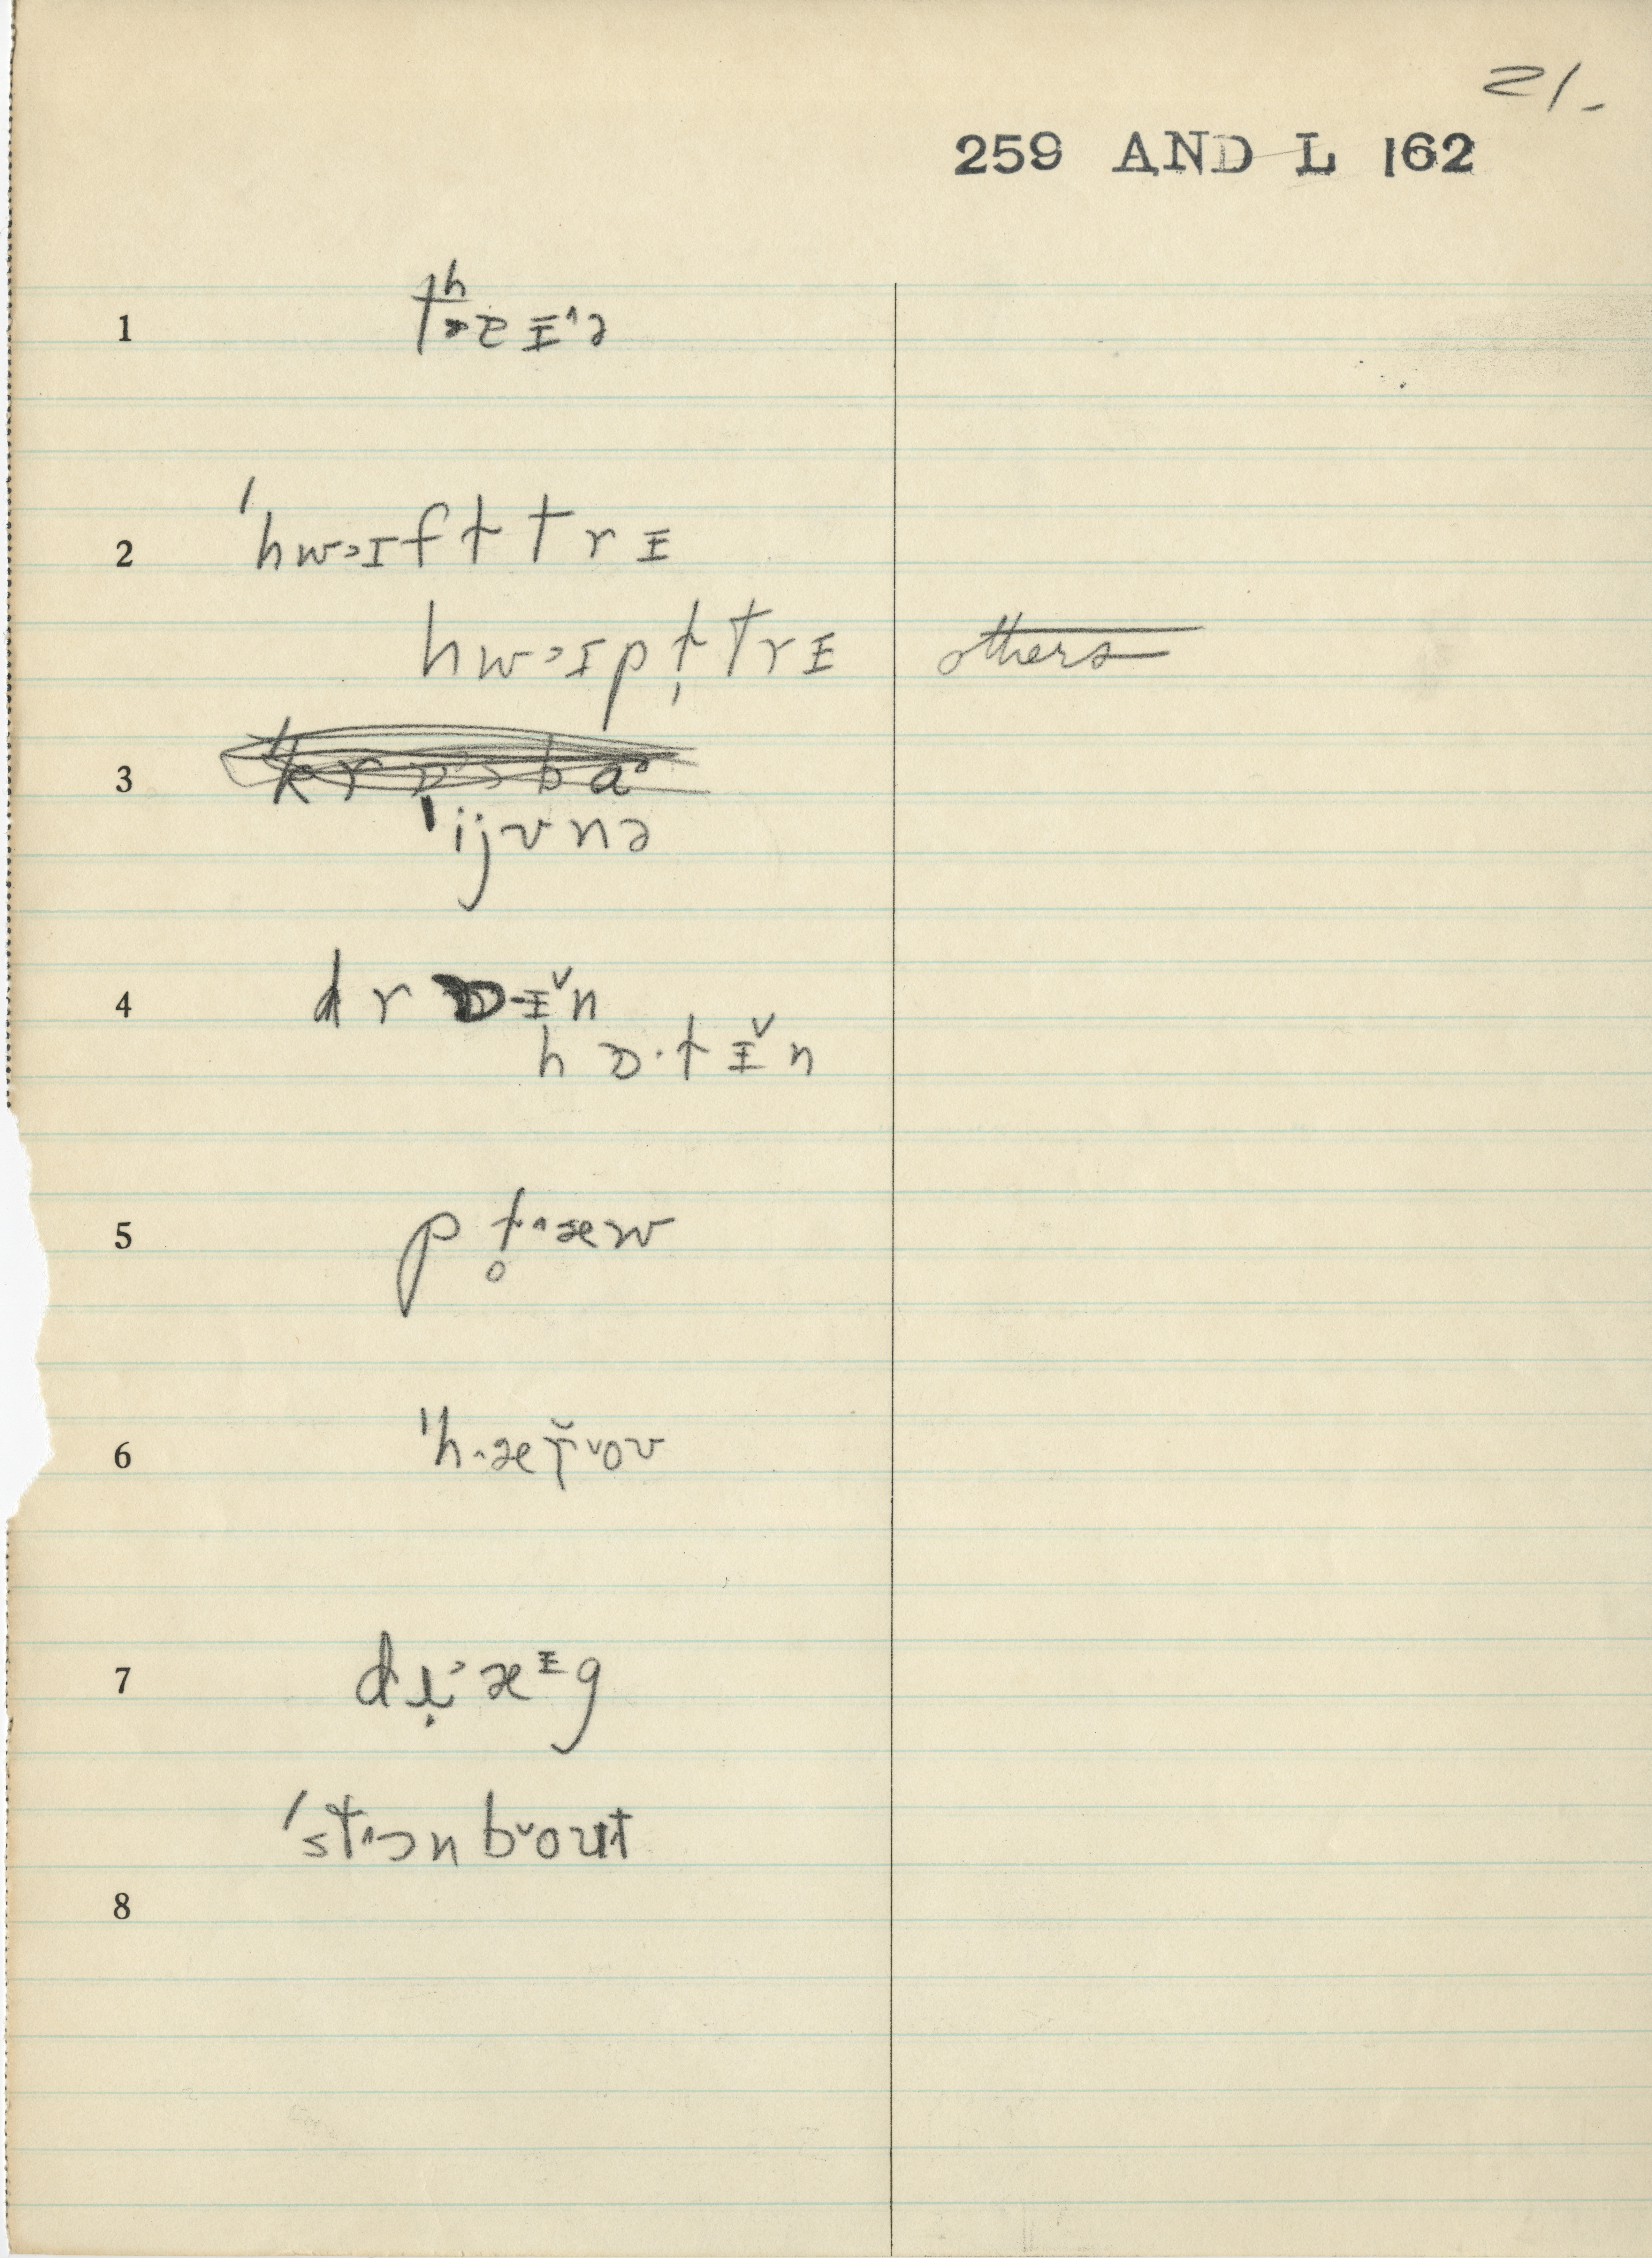 21.
259 AND L 162
1 tʰɐᵻ^ə
2 ˈhw˃ɪft trᵻ
hw˃ɪpt̩ trᵻ others
3
ˈijʊnə
4 drɒ·ᵻ˅n
hɒ·tᵻ˅n
5 pt̥^æw
6 ˈh^æt̬˅oʊ
7 dɹ̣˃æᵻg
ˈst^ɔn b˅oʊt
8